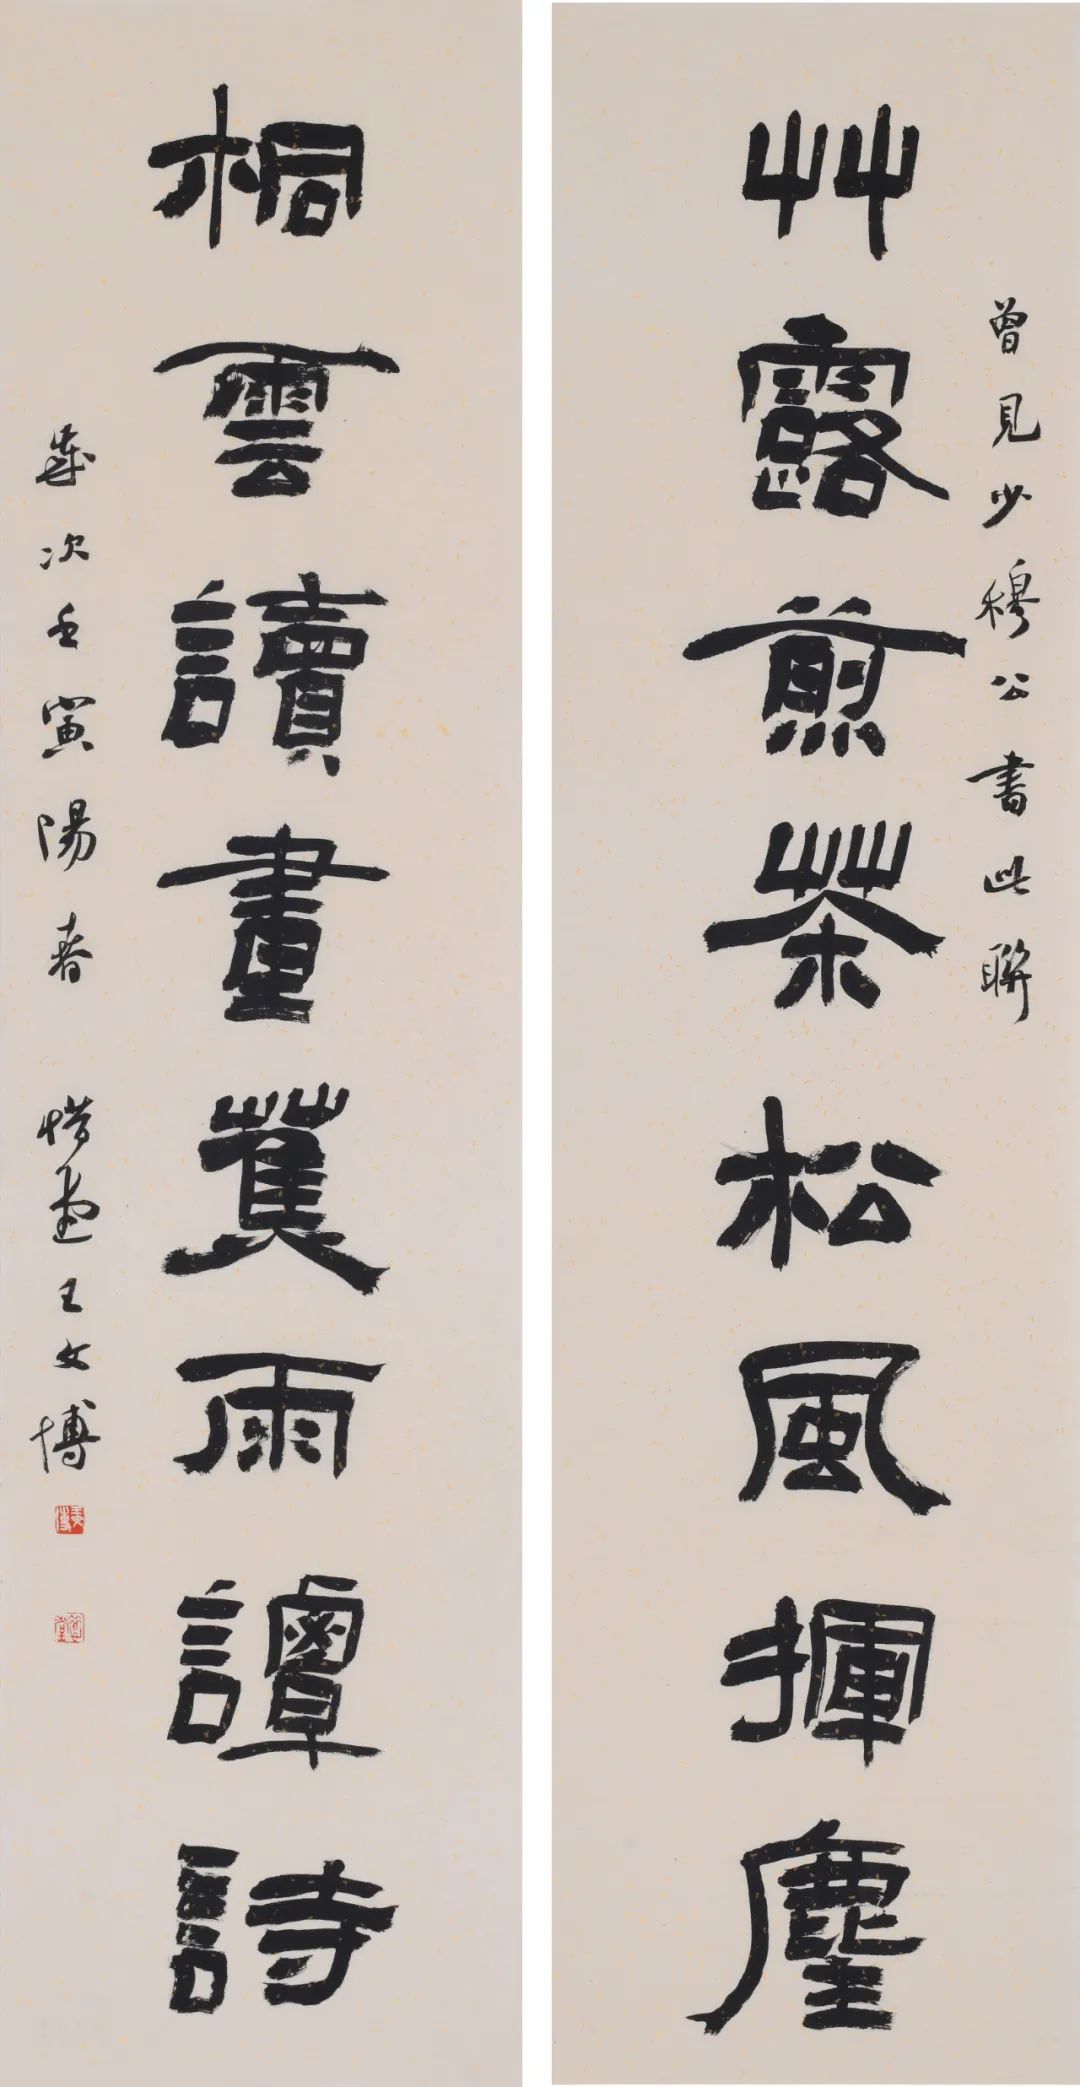 曾見少穆公書此聯
艸露煎茶松風揮麈
桐雲讀畫蕉雨譚詩
歲次壬寅陽春 惜 王文博